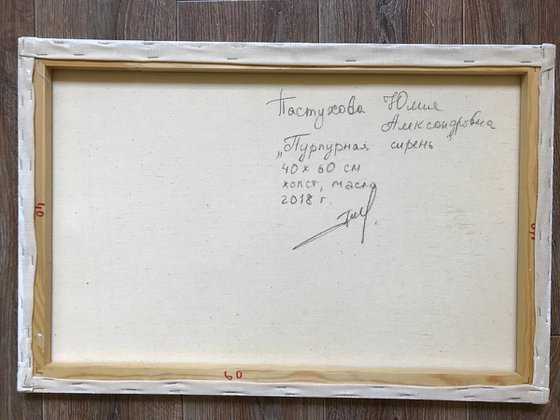 Пастухова Юлия
Александровна
„Пурпурная сирень"
40 х 60 см
холст, масло
2018 г.
40
60